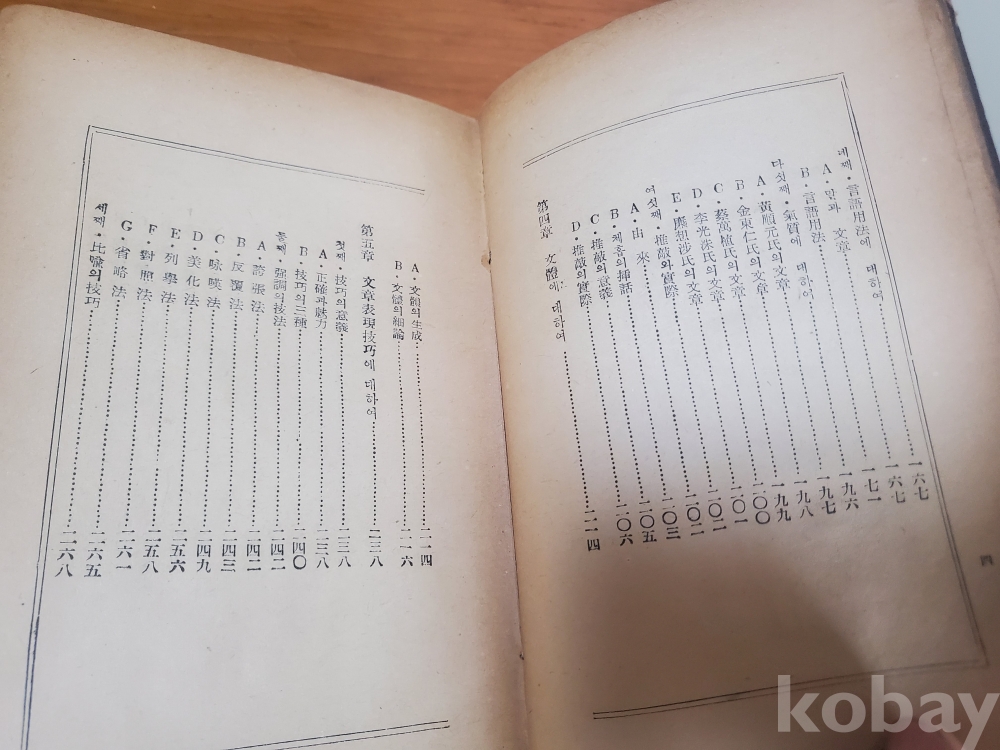 네째・言語用法에 대하여……一六七
A・말과 文章……一六七
B・言語用法……一七一
다섯째・氣質에 대하여……一九六
A・黃順元氏의文章……一九七
B・金東仁氏의文章……一九八
C・蔡萬植氏의文章……一九九
D・李光洙氏의文章……二〇〇
E・廉想涉氏의文章……二〇一
여섯째・推敲와實際……二〇二
A・由來……二〇二
B・체홉의揷話……二〇三
C・推敲의意義……二〇五
D・推敲의實際……二〇六
第四章 文體에 대하여……二一四
四
A・文體의生成……二一四
B・文體의細論……二一六
第五章 文章表現技巧에 대하여……二三八
첫째・技巧의意義……二三八
A・正確과魅力……二三八
B・技巧의三種……二四〇
둘째・强調의技法……二四二
A・誇張法……二四二
B・反覆法……二四三
C・咏嘆法……二四九
D・美化法……二五六
E・列擧法……二五八
F・對照法……二六一
G・省略法……二六五
세째・比喩의技巧……二六八
kobay